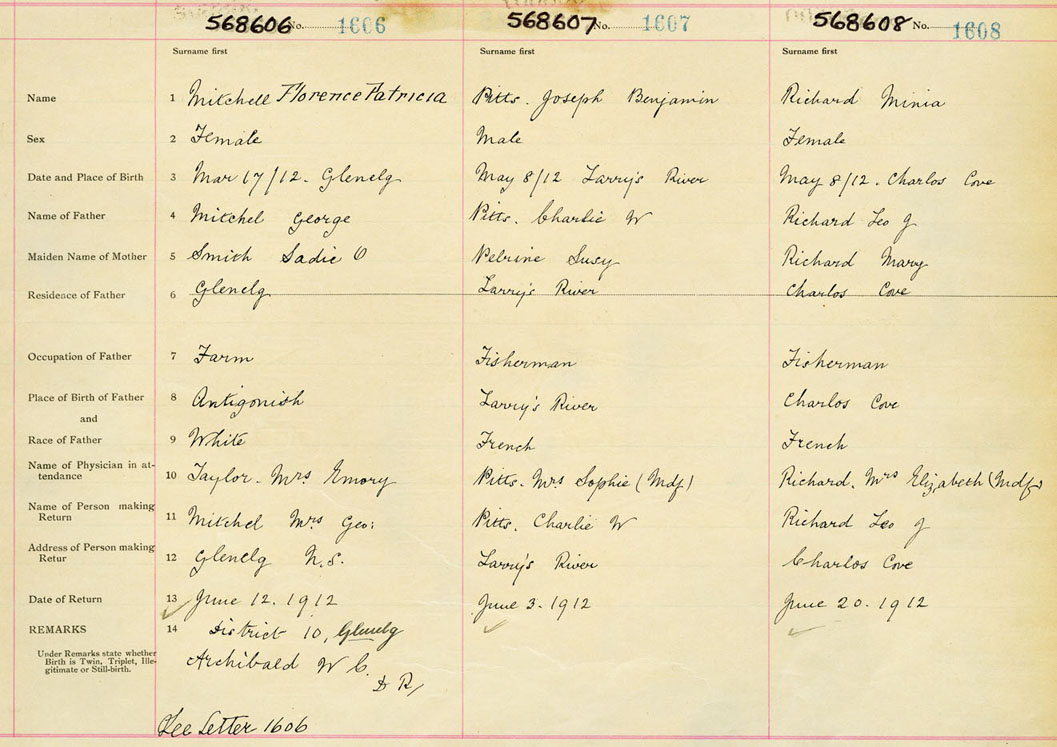 568606 No. 1606 568607 No. 1607 568608 No. 1608
Surname first Surname first Surname first
Name 1 Mitchell Florence Patricia Pitts. Joseph Benjamin Richard Minia
Sex 2 Female Male Female
Date and Place of Birth 3 Mar 17/12. Glenelg May 8/12 Larry's River May 8/12. Charlos Cove
Name of Father 4 Mitchel George Pitts. Charlie W Richard Leo J
Maiden Name of Mother 5 Smith Sadie O Pelrine Susy Richard Mary
Residence of Father 6 Glenelg Larry's River Charlos Cove
Occupation of Father 7 Farm Fisherman Fisherman
Place of Birth of Father 8 Antigonish Larry's River Charlos Cove
and
Race of Father 9 White French French
Name of Physician in at-
tendance 10 Taylor. Mrs Emory Pitts. Mrs Sophie (Mdf) Richard. Mrs Elizabeth (Mdf)
Name of Person making
Return 11 Mitchel Mrs Geo: Pitts. Charlie W Richard Leo J
Address of Person making
Retur 12 Glenelg N.S. Larry's River Charlos Cove
Date of Return 13 June 12. 1912 June 3. 1912 June 20. 1912
REMARKS 14 District 10, Glenelg
Under Remarks state whether
Birth is Twin, Triplet, Ille-
gitimate or Still-birth.
Archibald W C.
D R,
See Letter 1606